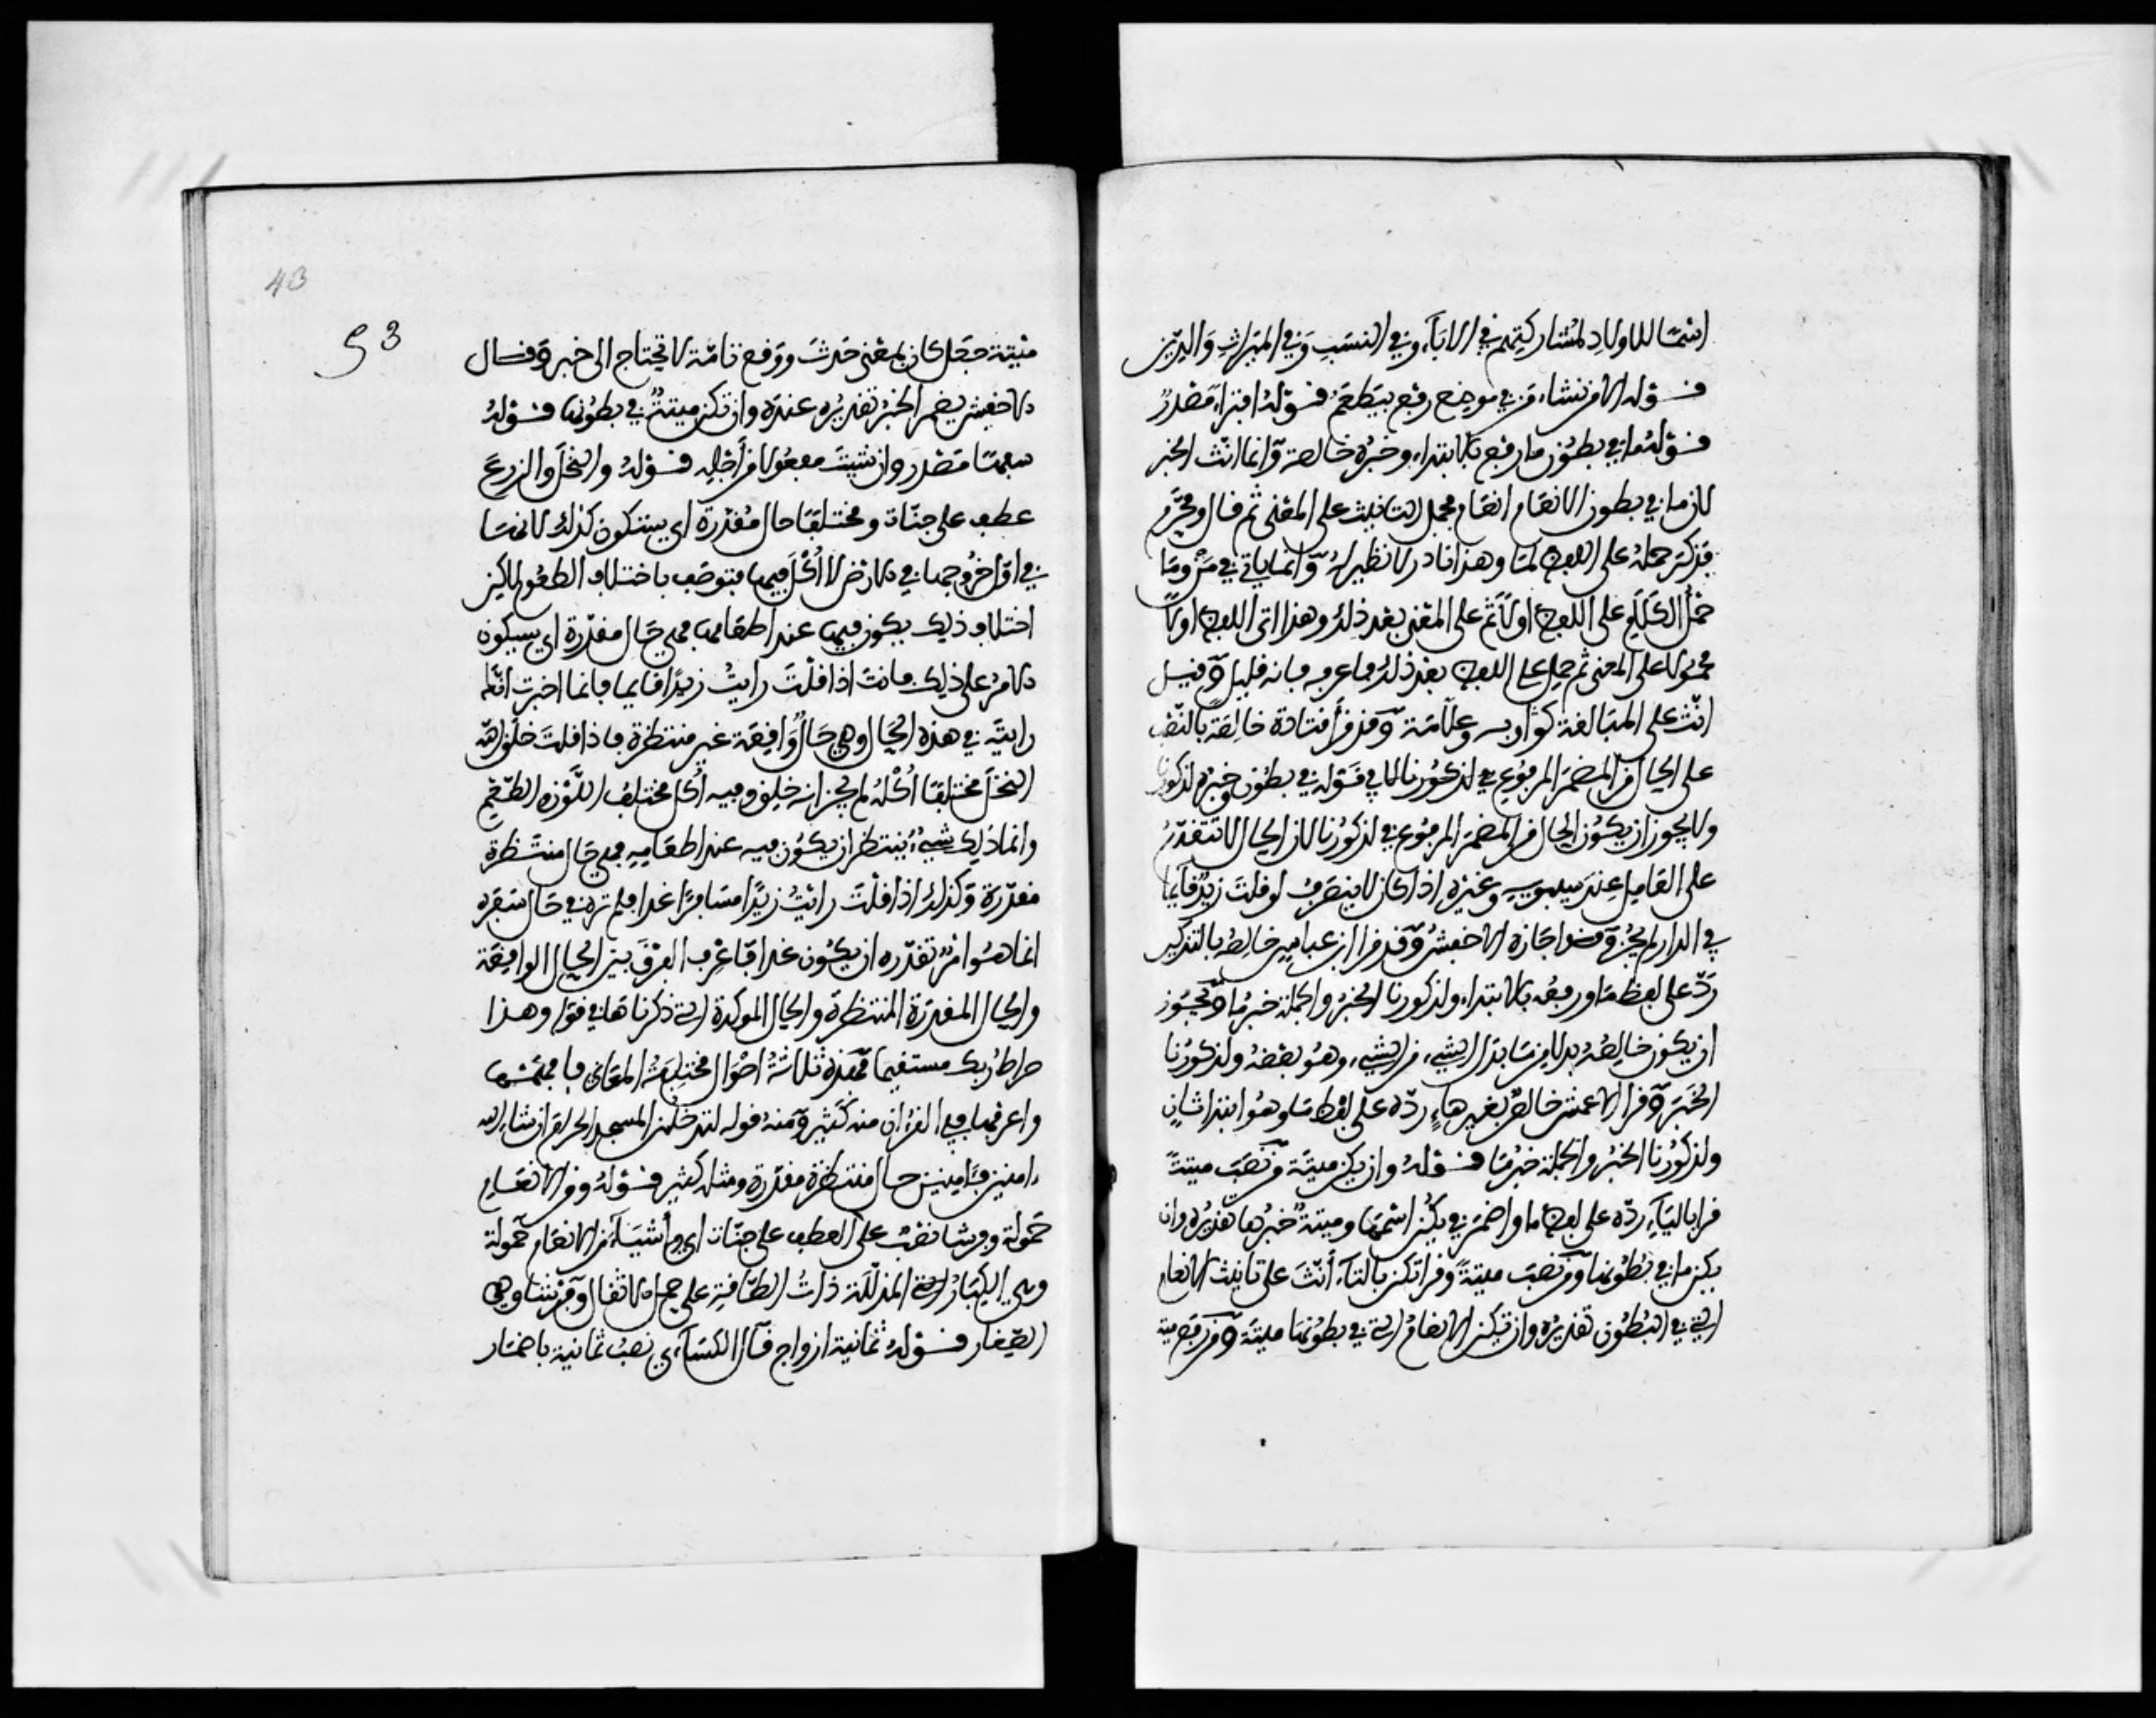 اسمًا للاولادِ لمُشاركتِهم في الابَآءِ وفي النسَبِ وَفي الميرَاثِ وَالدِّين
قوله الا من نشاء مَن في موضع رفع بيَطعَمُ قوْلهُ افتراءً مَصْدر
قوْلهُ ما في بطُون ما رفع بالابتداء وخبَرُه خالصة وَانما انّث الخبر
لان ما في بطون الانعَام انعَام فحمل التانيث على المعْنى ثم قال ومحَرَّم
فذكّر حملهُ على اللفظ لمَا وهذا نادر لا نظير لهُ وَانما ياتي في مَنْ ومَا
حَمْلُ الكَلَامِ على اللفظِ اولًا ثم على المعْنى بعْد ذلك وهذا اتى اللفظ اولًا
محمُولا على المعنى ثم حمل على اللفظ بعد ذلك فاعرفه فانه قليل وَقيل
انّث على المبَالغة كرَاويَة وعلّامَة وَقد قرأ قتادة خالِصَةً بالنّصب
على الحال من المضمَر المرفوع في لذكُورنا لا في قَوْله في بطُون وخبَرُه لذكورنا
ولا يجوز ان يكُون الحال من المضمَر المرفوع في لذكُورنا لان الحال لا تتقدّم
على العَامل عِندَ سيبويهِ وغيْره اذا كان لا ينصَرفُ لو قلتَ زيدٌ قآيمًا
في الدار لم يجُز وقد اجَازه الاخفشُ وَقد قرا ابن عباس خالصُه بالتذكير
رَدّه على لفظ مَا ورفعَه بالابتداء ولذكورنا الخبرُ والجملة خبر مَا وَيجُوز
ان يكون خالِصُهُ بدلا من مَا بدَل الشيء من الشيء وهوُ بعْضهُ ولذكورْنا
الخبَر وَقرا الاعمش خالصٌ بغير هاءٍ ردّه على لفظ مَا وهُو ابتدا ثانٍ
ولذكُورْنا الخبرُ والجملة خبرُ مَا قوْلهُ وان يكن ميتَة مَن نصَبَ ميتةً
قرا باليَآءِ ردّه على لفظ ما واضمَر في يكُن اسْمَها وميتةً خبَرُها تقديرُه وان
يكن ما في بُطُونها ميتةً وَمَن نصَبَ ميتةً وقرا تكن بالتاءِ أنّثَ على تانيث الانعام
التي في البُطُون تقديرُه وان تكن الانعَامُ التي في بطُونها ميتَة وَمَن رَفع ميتة
43
53
ميتة جعَل كان بمعْنى حَدثَ ووَقع تامّة لا تحتاج الى خبر وَقال
الاخفش يضمر الخبرُ تقديرُه عندَه وان تكن ميتةٌ في بطُونها قوْلهُ
سفهًا مَصْدر وان شيتَ مفعُولا من أجْلِه قوْلهُ والنخلَ والزرعَ
عطف على جنّات ومختلفًا حال مُقدّرة اي سيَكون كذلك لانهَا
في اوّل خرُوجها في الارْض لا اُكُلَ فيها فتوصَف باختلاف الطعُوم لاكن
اختلاف ذلك يكون فيها عند اطعَامها فهي حَال مقدّرة اي سيكون
الامرُ على ذلك فانتَ اذا قلْتَ رايتُ زيدًا قايما فانما اخبرت انّك
رايتَه في هذه الحَال فهي حَالٌ وَاقِعَة غير منتظرة فاذا قلت خلَق الله
النخلَ مختلفًا اُكُلهُ لم يخبر انه خلق وفيه اُكل مختلفُ اللّوْن والطَّعْم
وانما ذلك شيءٌ يُنتظر ان يكُون فيه عند اطعَامِهِ فهي حَال منتَظرة
مقدّرة وَكذلك اذا قلْتَ رايْتُ زيدًا مسَافرًا غدا فلم تره في حَال سَفَره
انما هُوَ امْر تقدّره ان يكُون غدا فاعرِف الفرْقَ بين الحال الواقِعَة
والحال المقدَرة المنتظرة والحال الموكدة التي ذكرناهَا في قوْله وهذا
صراط رَبك مستقيما فهَذه ثلاثةُ احْوَال مختلِفةُ المعَاني فافهمْها
واعرفها ففي القرْءان منه كثير وَمنهُ قوله لتدخلن المسجد الحرَام ان شاء الله
ءامنين فئَامِنينَ حال منتظرة مقدّرة ومثلهُ كثير قوْلهُ ومن الانعَام
حَمُولة وفرشا نصْبٌ على العطف على جنّات اي وأنشَأ من الانعَام حَمُولة
وهي الكِبَارُ التي المذلّلَة ذاتُ الطّاقة على حمل الاثقال وَفرْشًا وهي
الصّغَار قوْلهُ ثمانيَة ازواج قَال الكسَآءي نصبُ ثمانية باضمَار